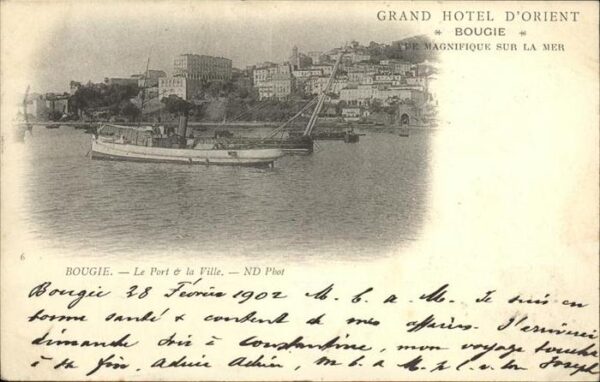 GRAND HOTEL D'ORIENT
* BOUGIE *
VUE MAGNIFIQUE SUR LA MER
6
BOUGIE. — Le Port & la Ville. — ND Phot
Bougie 28 Février 1902 M. b. a. M. Je suis en
bonne santé & content de mes affaires. J'arriverai
dimanche soir à Constantine, mon voyage touche
à sa fin. Adieu Adieu, m b. a M. Joseph